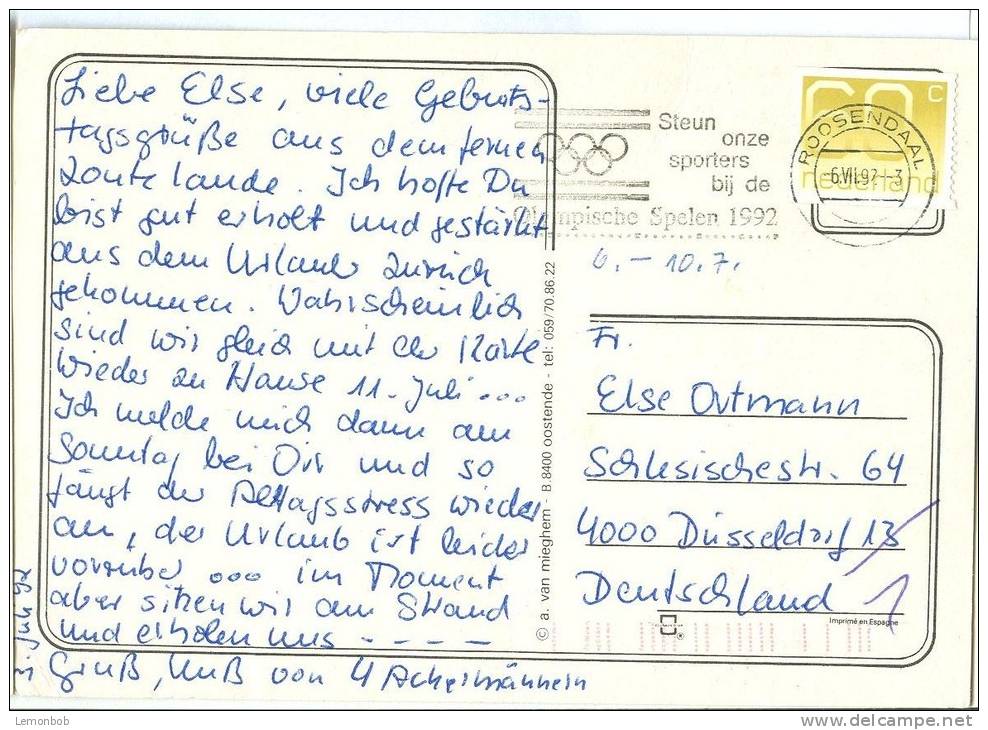 Liebe Else, viele Geburts-
tagsgrüße aus dem fernen
Zoutelande. Ich hoffe Du
bist gut erholt und gestärkt
aus dem Urlaub zurück
gekommen. Wahrscheinlich
sind wir gleich mit der Karte
wieder zu Hause 11. Juli ...
Ich melde mich dann am
Sonntag bei Dir und so
fängt der Alltagsstress wieder
an, der Urlaub ist leider
vorüber ... im Moment
aber sitzen wir am Strand
und erholen uns - - - -
Gruß, Kuß von 4 Ackermännern
Juli 92
© a. van mieghem - B.8400 oostende - tel: 059/70.86.22
Steun
onze
sporters
bij de
Olympische Spelen 1992
60 c
nederland
ROOSENDAAL
-6.VII.92--3
6. - 10.7.
Fr.
Else Ortmann
Schlesischestr. 64
4000 Düsseldorf 13
Deutschland 1
Imprimé en Espagne
Lemonbob
www.delcampe.net